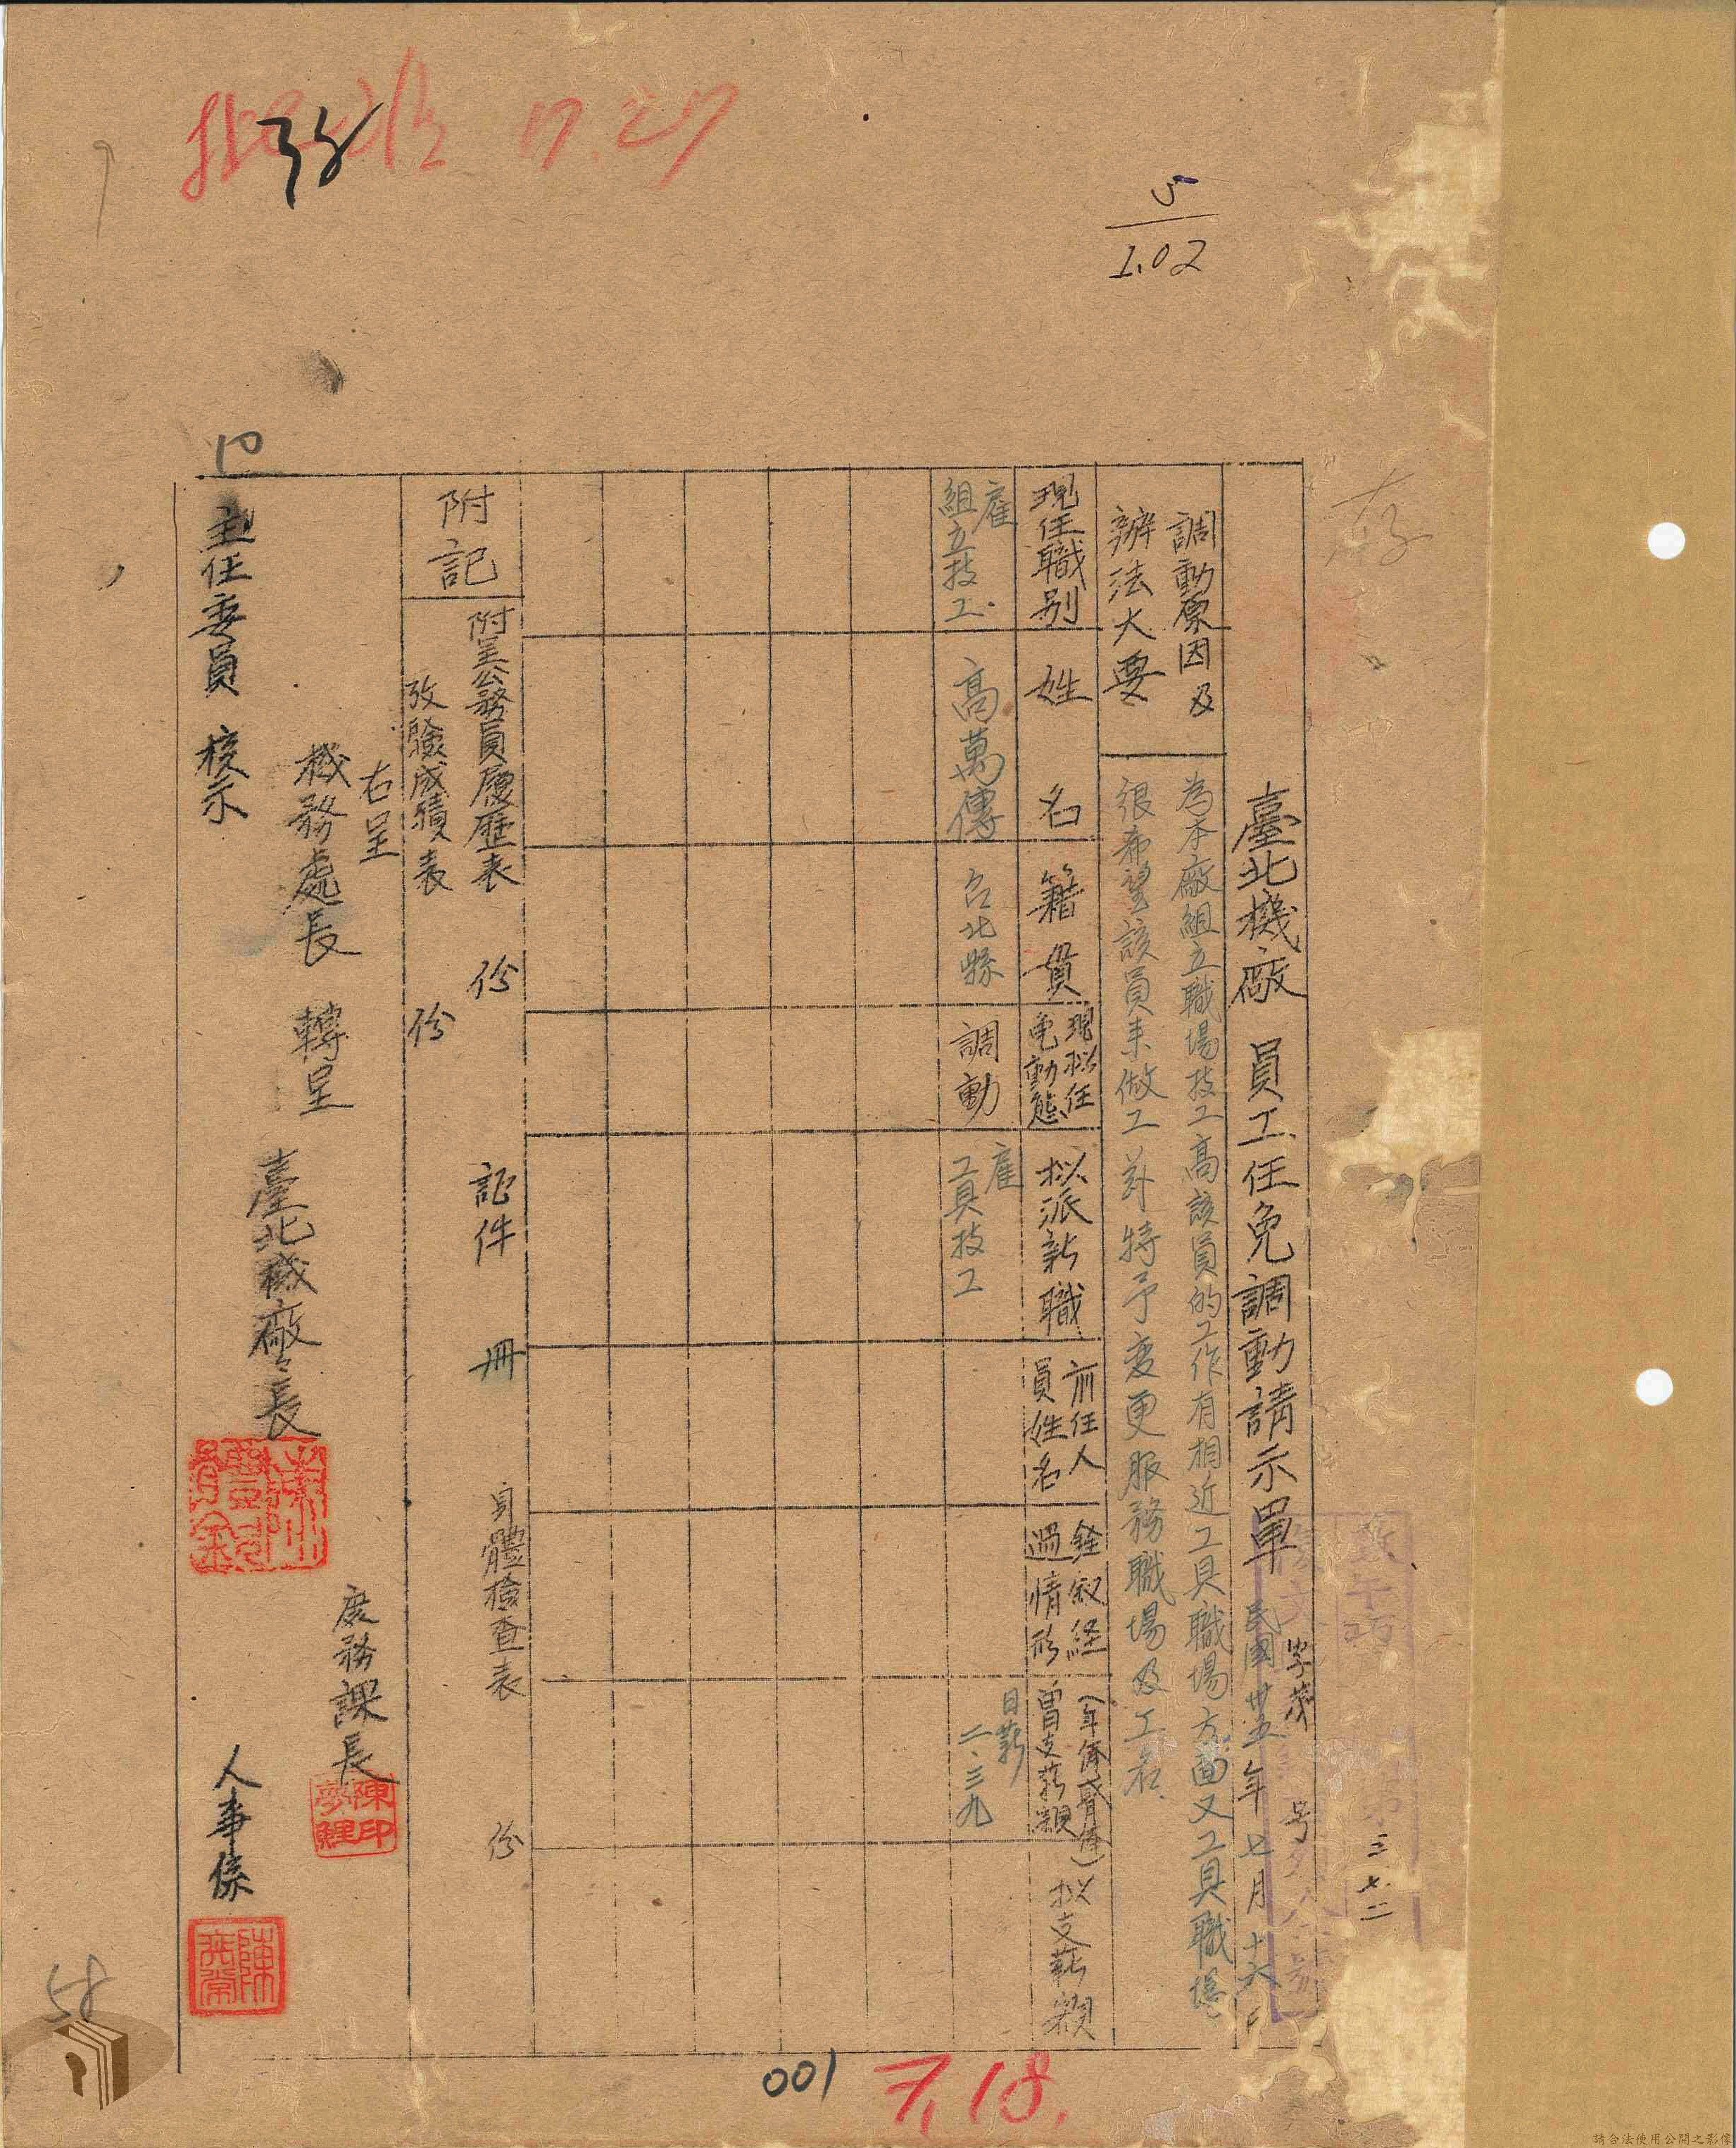 存
臺北機廠 員工任免調動請示單
字第 号
三七二
民國卅五年七月十六日
調動原因及
辦法大要
為本廠組立職場技工高該員的工作有相近工具職場方面又工具職場
很希望該員来做工 特予变更服務職場及工名
現任職别
姓名
籍貫
現拟任
動態
拟派新職
前任人
員姓名
銓叙経
過情形
(年俸或月俸)
曽支薪額
拟支薪額
雇
組立技工
高萬傳
台北縣
調動
雇
工具技工
日薪
二.三九
附記
附呈公務員履歷表 份 証件 冊 身體檢查表 份
攷驗成績表 份
右呈
機務處長 轉呈
主任委員 核示
臺北機廠長
庶務課長
陳印
人事係
5
1.02
17.27
001
7,18.
54
請合法使用公開之影像